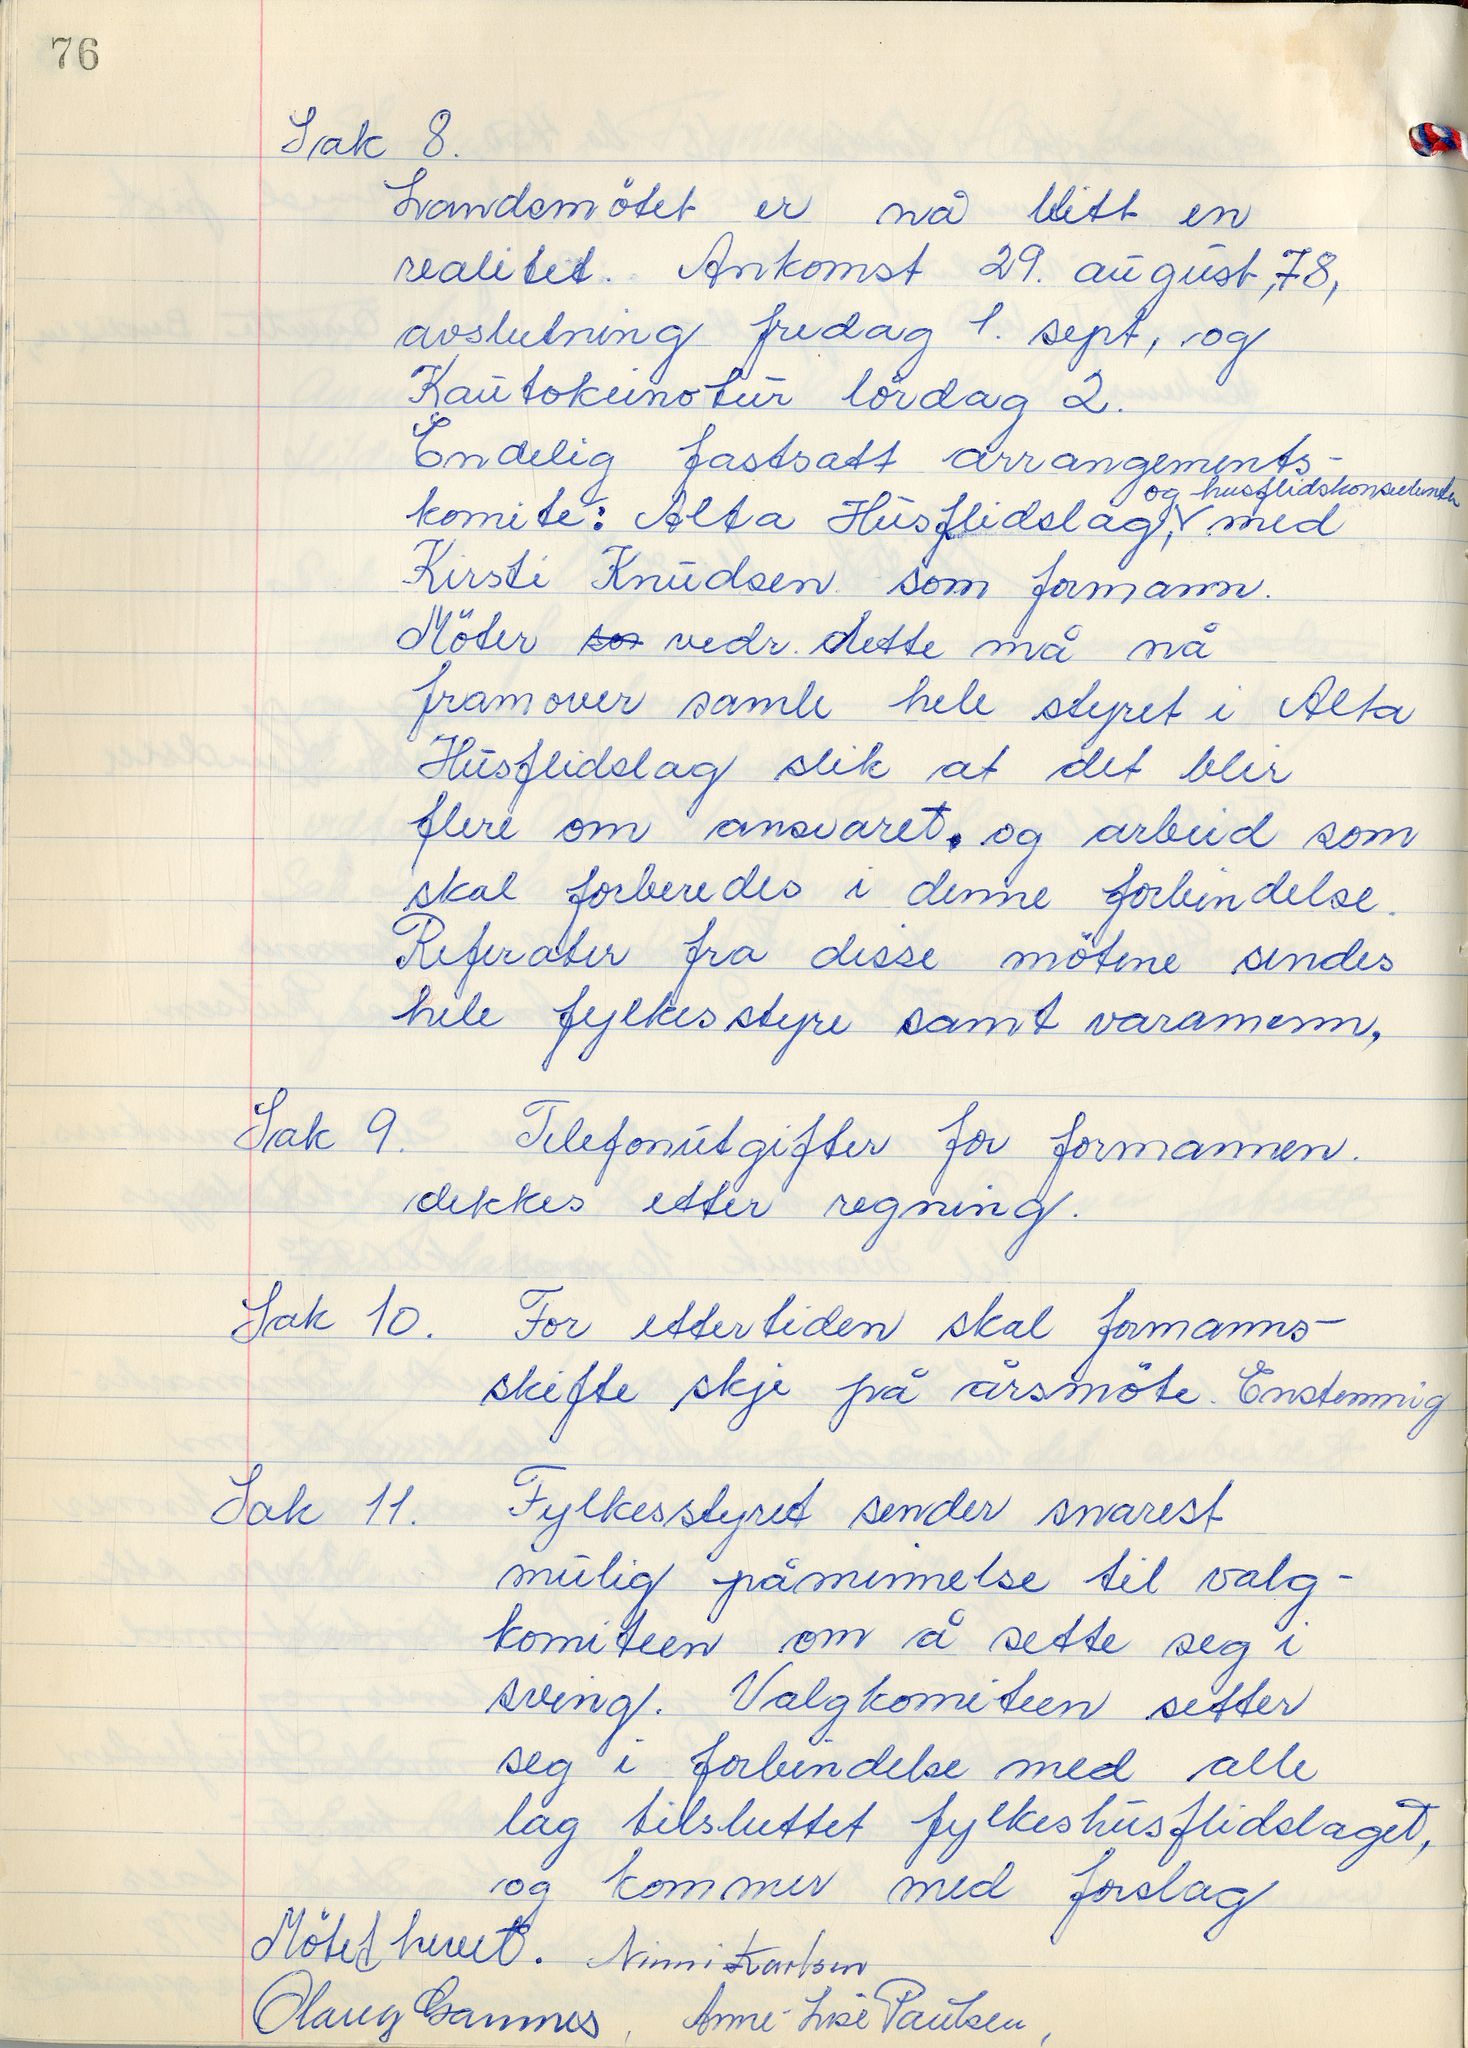 76
Sak 8.
Landsmötet er nå blitt en
realitet. Ankomst 29. august, 78,
avslutning fredag 1. sept, og
Kautokeinotur lördag 2.
Endelig fastsatt arrangements-
og husflidskonsulenten
komite: Alta Husflidslag, med
Kirsti Knudsen som formann.
Möter so vedr. dette må nå
framover samle hele styret i Alta
Husflidslag slik at det blir
flere om ansvaret. og arbeid som
skal forberedes i denne forbindelse.
Referater fra disse mötene sendes
hele fylkesstyre samt varamenn,
Sak 9. Telefonutgifter for formannen.
dekkes etter regning.
Sak 10. For ettertiden skal formanns-
skifte skje på årsmöte. Enstemmig
Sak 11. Fylkesstyret sender snarest
mulig påminnelse til valg-
komiteen om å sette seg i
sving. Valgkomiteen setter
seg i forbindelse med alle
lag tilsluttet fylkeshusflidslaget,
og kommer med forslag
Mötet hevet. Ninni Karlsen
Olaug Gamnes, Anne-Lise Paulsen,